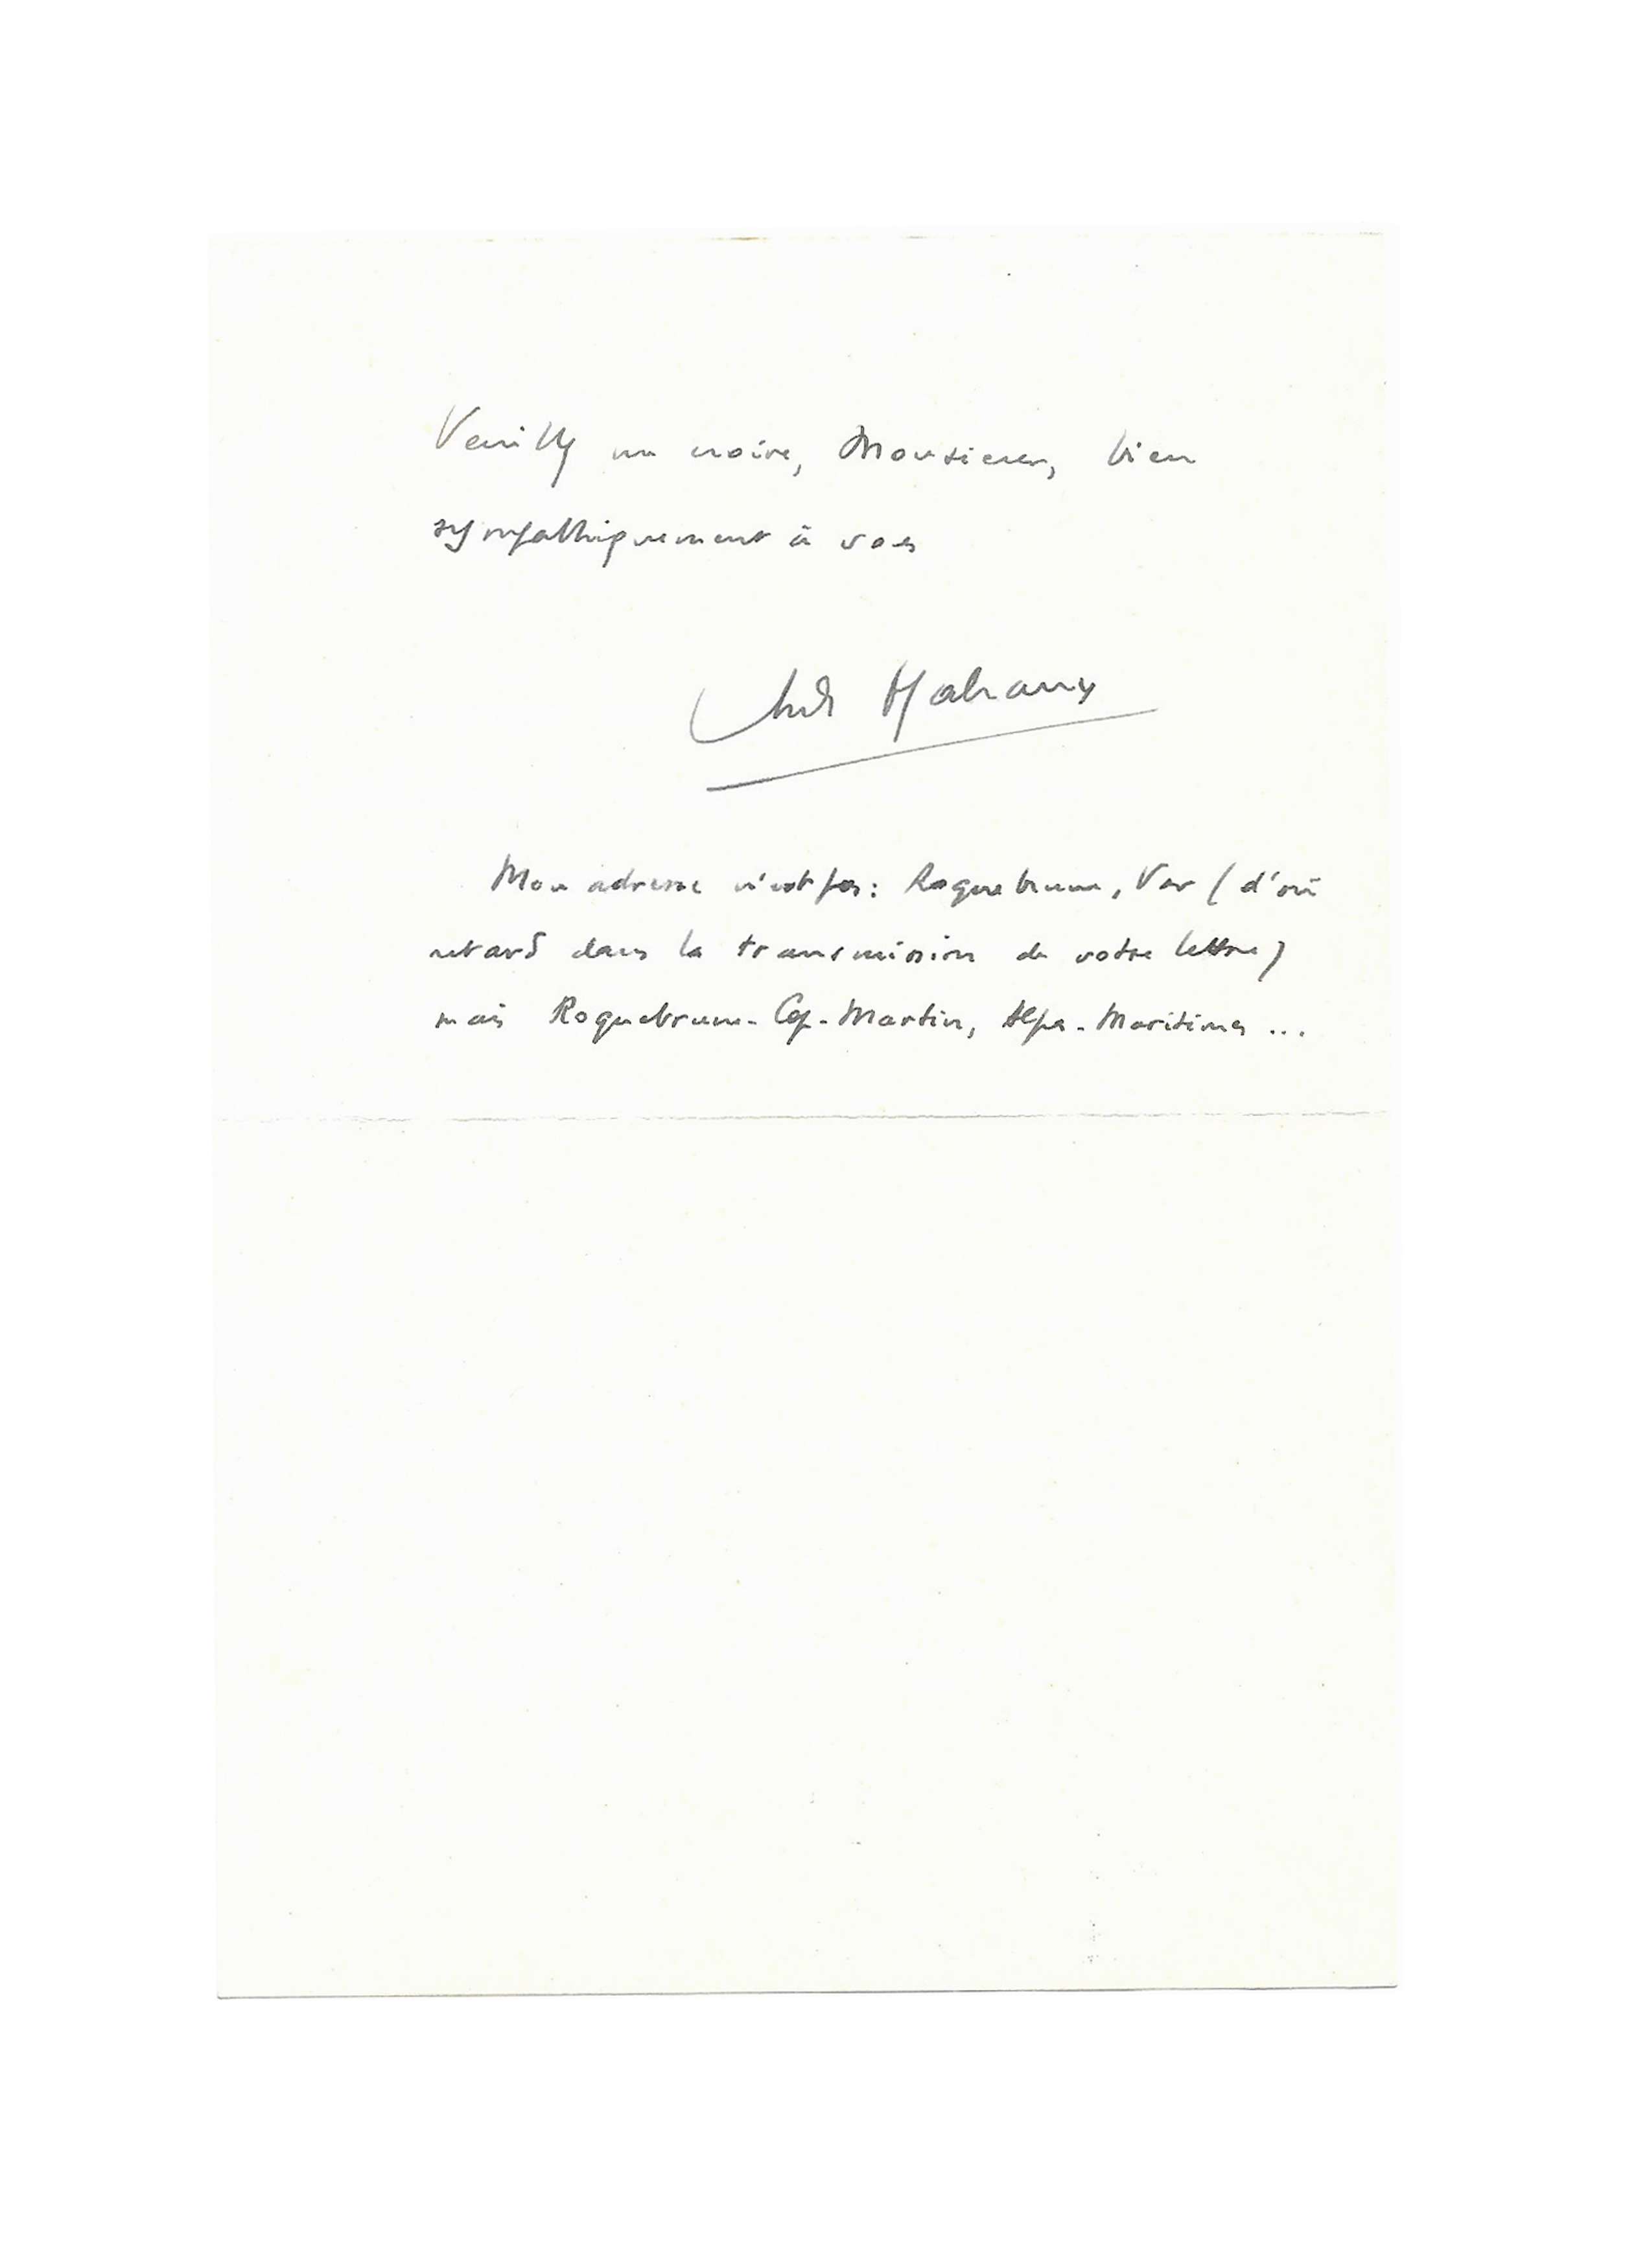 Veuillez me croire, Monsieur, bien
sympathiquement à vous
André Malraux
Mon adresse n'est pas : Roquebrune, Var (d'où
retard dans la transmission de votre lettre)
mais Roquebrune-Cap-Martin, Alpes-Maritimes ...